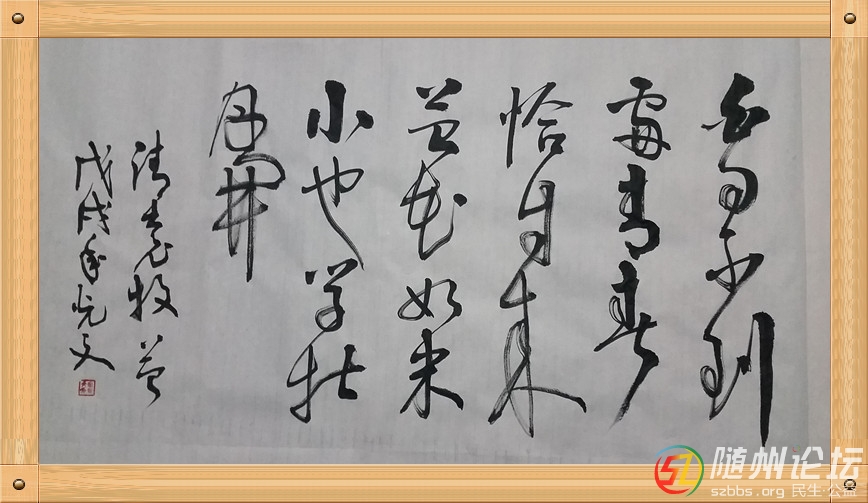 白日不到
處青春
恰自来
苔花如米
小也学牡
丹開
清袁枚苔
戊戌年文
随州论坛
szbbs.org 民生·公益